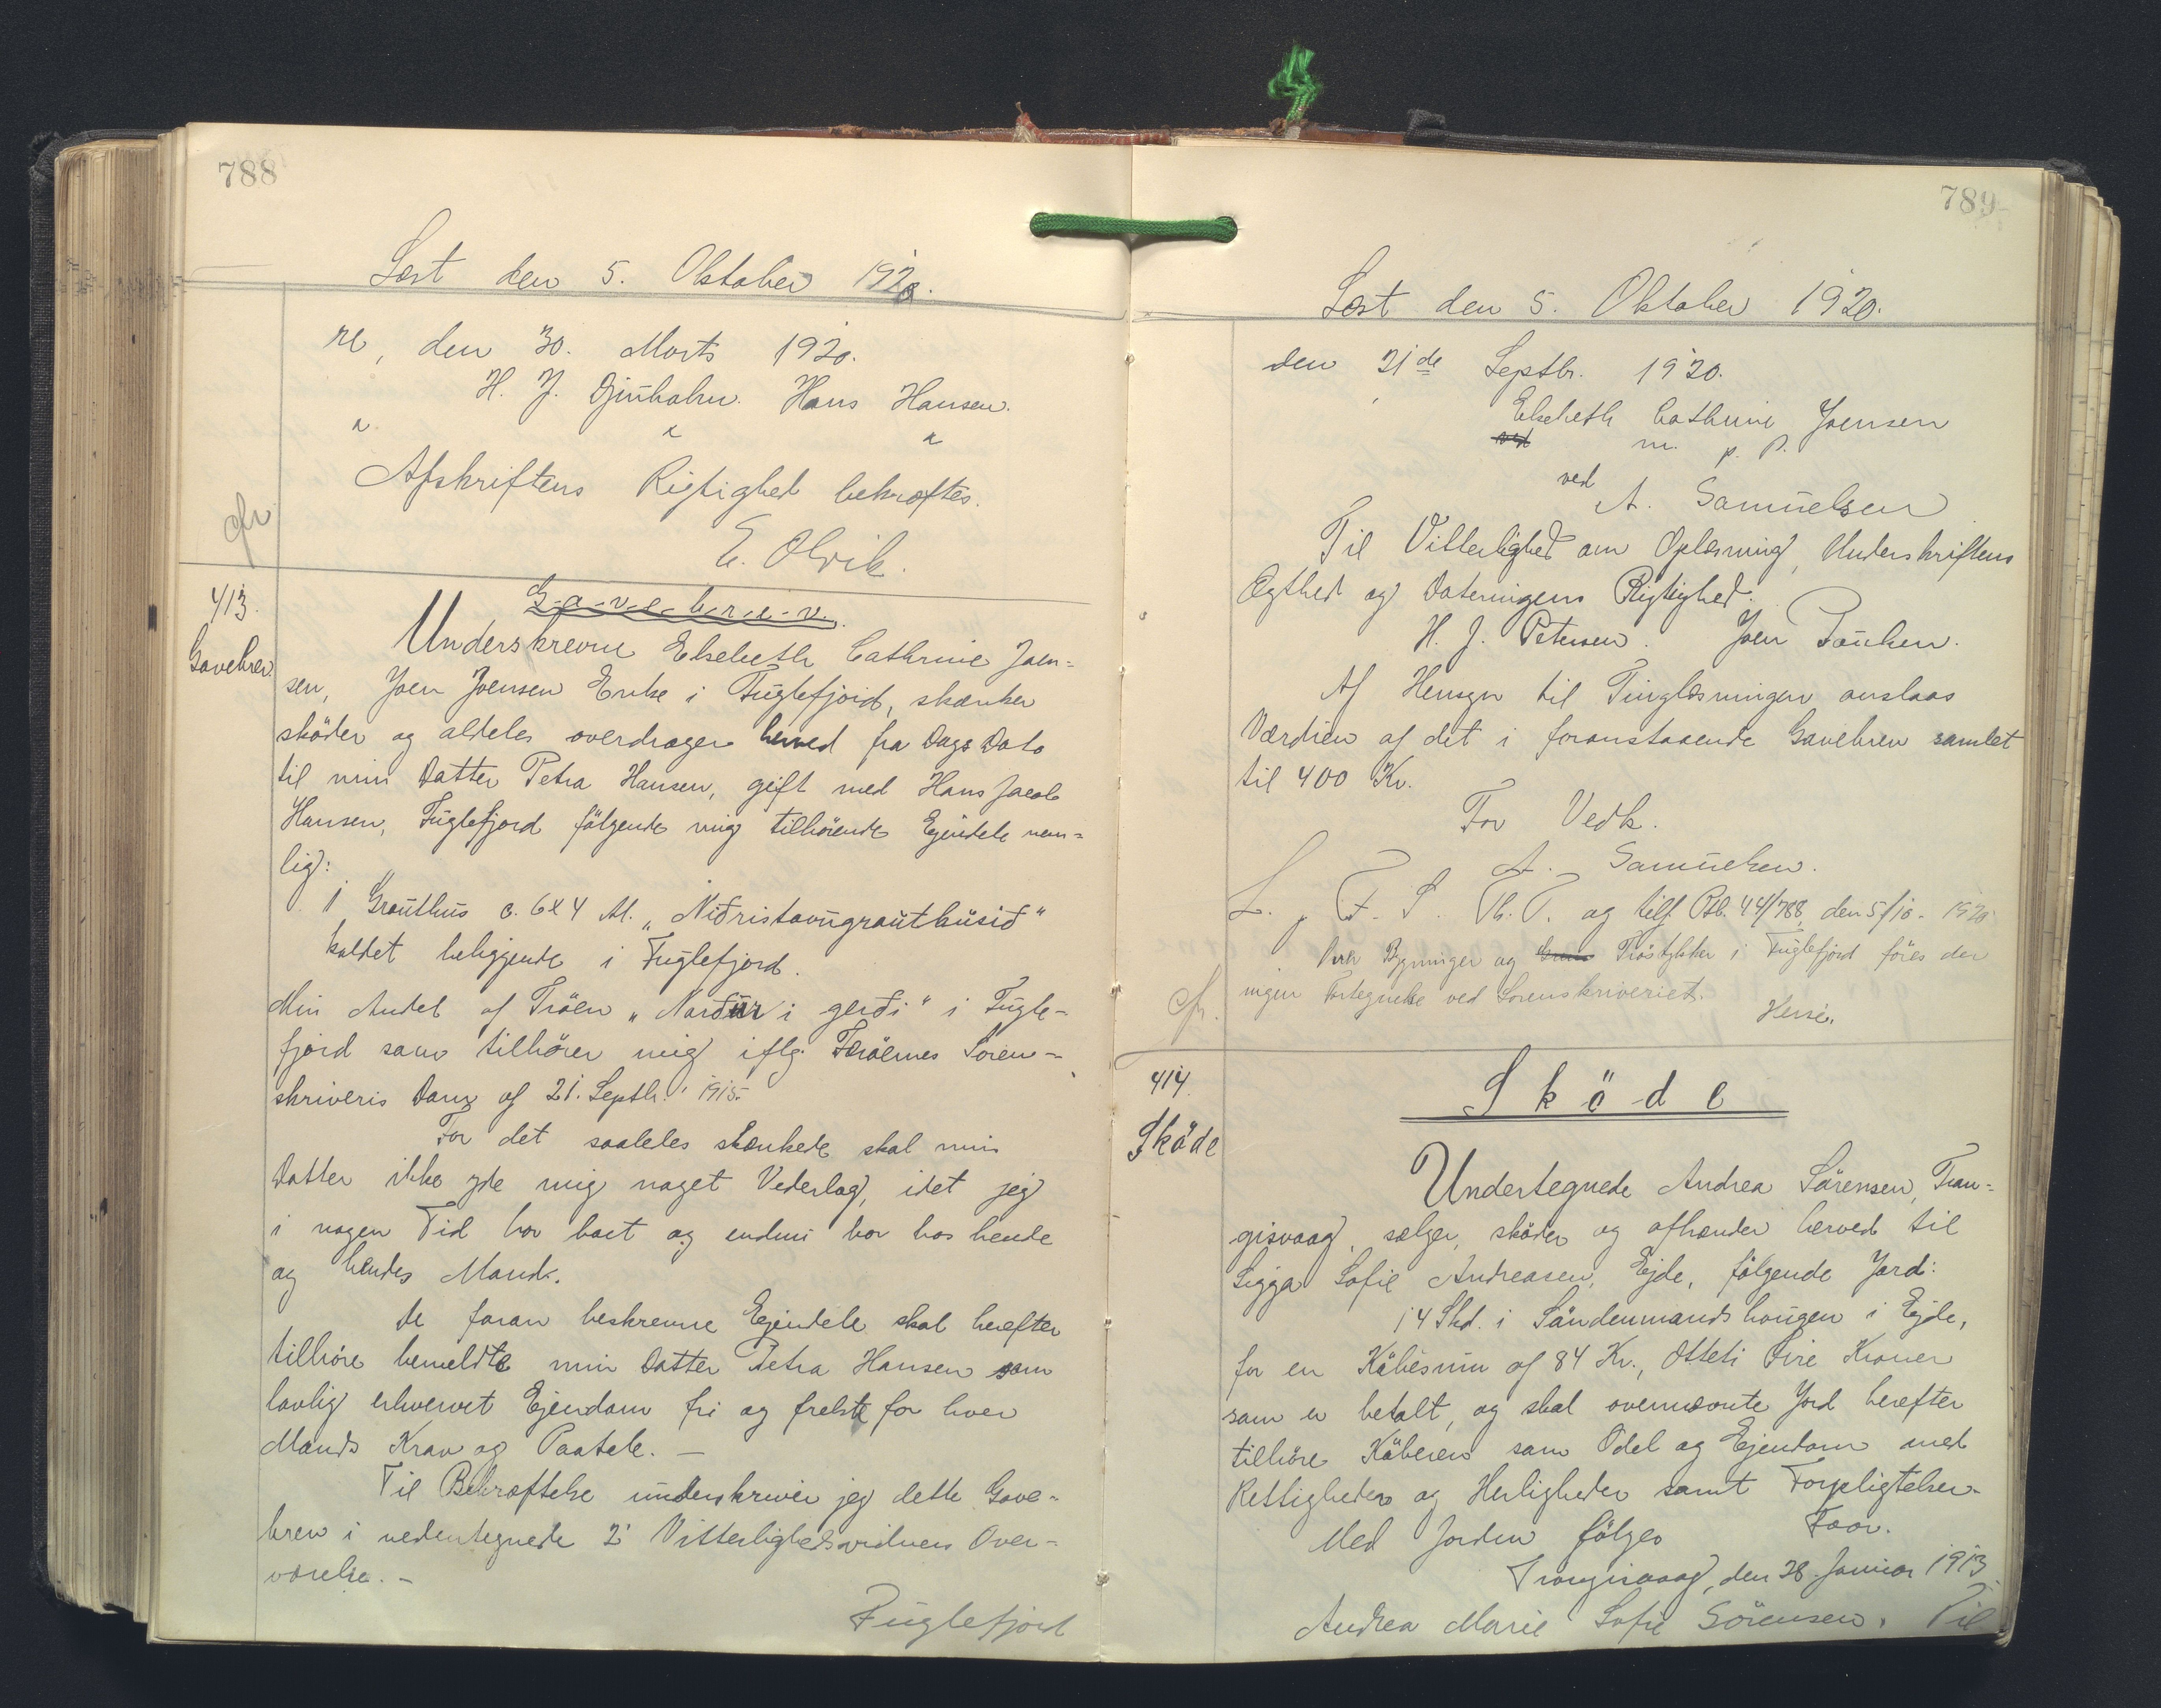 788
Læst den 5. Oktober 1920.
re, den 30. Marts 1920.
H. J. Djurholm. Hans Hansen.
Afskriftens Rigtighed bekræftes.
E. Olvik.
cfr
413.
Gavebrev.
G-a-v-e-b-r-e-v.
Underskrevne Elsebeth Cathrine Joen-
sen, Joen Joensen Enke i Fuglefjord, skænker
skøder og aldeles overdrager herved fra Dags Dato
til min Datter Petra Hansen, gift med Hans Jacob
Hansen, Fuglefjord følgende mig tilhørende Ejendele nem-
lig:
1 Grouthus c. 6x4 Al. „Niðristovugrouthúsið"
kaldet beliggende i Fuglefjord.
Min Andel af Tröen „Norður i gerði" i Fugle-
fjord som tilhører mig iflg. Færöernes Soren-
skriveris Dom af 21. Septb. 1915.
For det saaledes skænkede skal min
Datter ikke yde mig noget Vederlag, idet jeg
i nogen Tid har boet og endnu bor hos hende
og hendes Mand.
De foran beskrevne Ejendele skal herefter
tilhøre bemeldte min Datter Petra Hansen som
lovlig erhvervet Ejendom fri og frelst for hver
Mands Krav og Paatale. -
Til Bekræftelse underskriver jeg dette Gave-
brev i nedentegnede 2 Vitterlighedsvidners Over-
værelse. -
Fuglefjord
789
Læst den 5. Oktober 1920.
den 21de Septbr. 1920.
Elsebeth Cathrine Joensen
ved m. p. P.
ved
A. Samuelsen
Til Vitterlighed om Oplæsning, Underskriftens
Ægthed og Dateringens Rigtighed.
H. J. Petersen. Joen Poulsen.
Af Hensyn til Tinglæsningen anslaas
Værdien af det i foranstaaende Gavebrev samlet
til 400 Kr.
For Vedk.
A. Samuelsen.
L. F. S. Th. T. og tilf. Pb. 44/788 den 5/10- 1920
Over Bygninger og Tröstykker i Fuglefjord föres der
ingen Fortegnelse ved Sorenskriveriet.
cfr.
414.
Sköde
S k ö d e
Undertegnede Andrea Sörensen, Tran-
gisvaag, sælger, sköder og afhænder herved til
Sigga Sofie Andreasen, Ejde, fölgende Jord:
14 Skd. i Söndenmandshougen i Ejde,
for en Köbesum af 84 Kr., Otteti Fire Kroner
som er betalt, og skal ovennævnte Jord herefter
tilhöre Köberen som Odel og Ejendom med
Rettigheder og Herligheder samt Forpligtelser.
Med Jorden fölger Faar.
Trangisvaag, den 28. Januar 1913
Andrea Marie Sofie Sörensen. Til